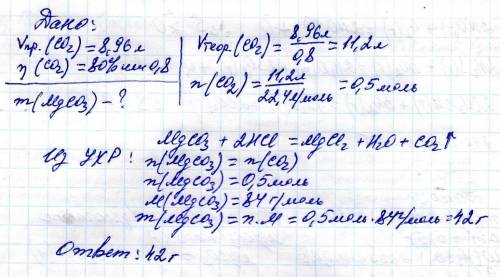 Дано:
Vпр.(CO₂)=8,96л
η(CO₂)=80% или 0,8
m(MgCO₃)-?
Vтеор.(CO₂)=8,96л/0,8=11,2л
n(CO₂)=11,2л/22,4л/моль=0,5моль
MgCO₃+2HCl=MgCl₂+H₂O+CO₂↑
Из УХР: n(MgCO₃)=n(CO₂)
n(MgCO₃)=0,5моль
M(MgCO₃)=84г/моль
m(MgCO₃)=n.M=0,5моль.84г/моль=42г
Ответ:42г